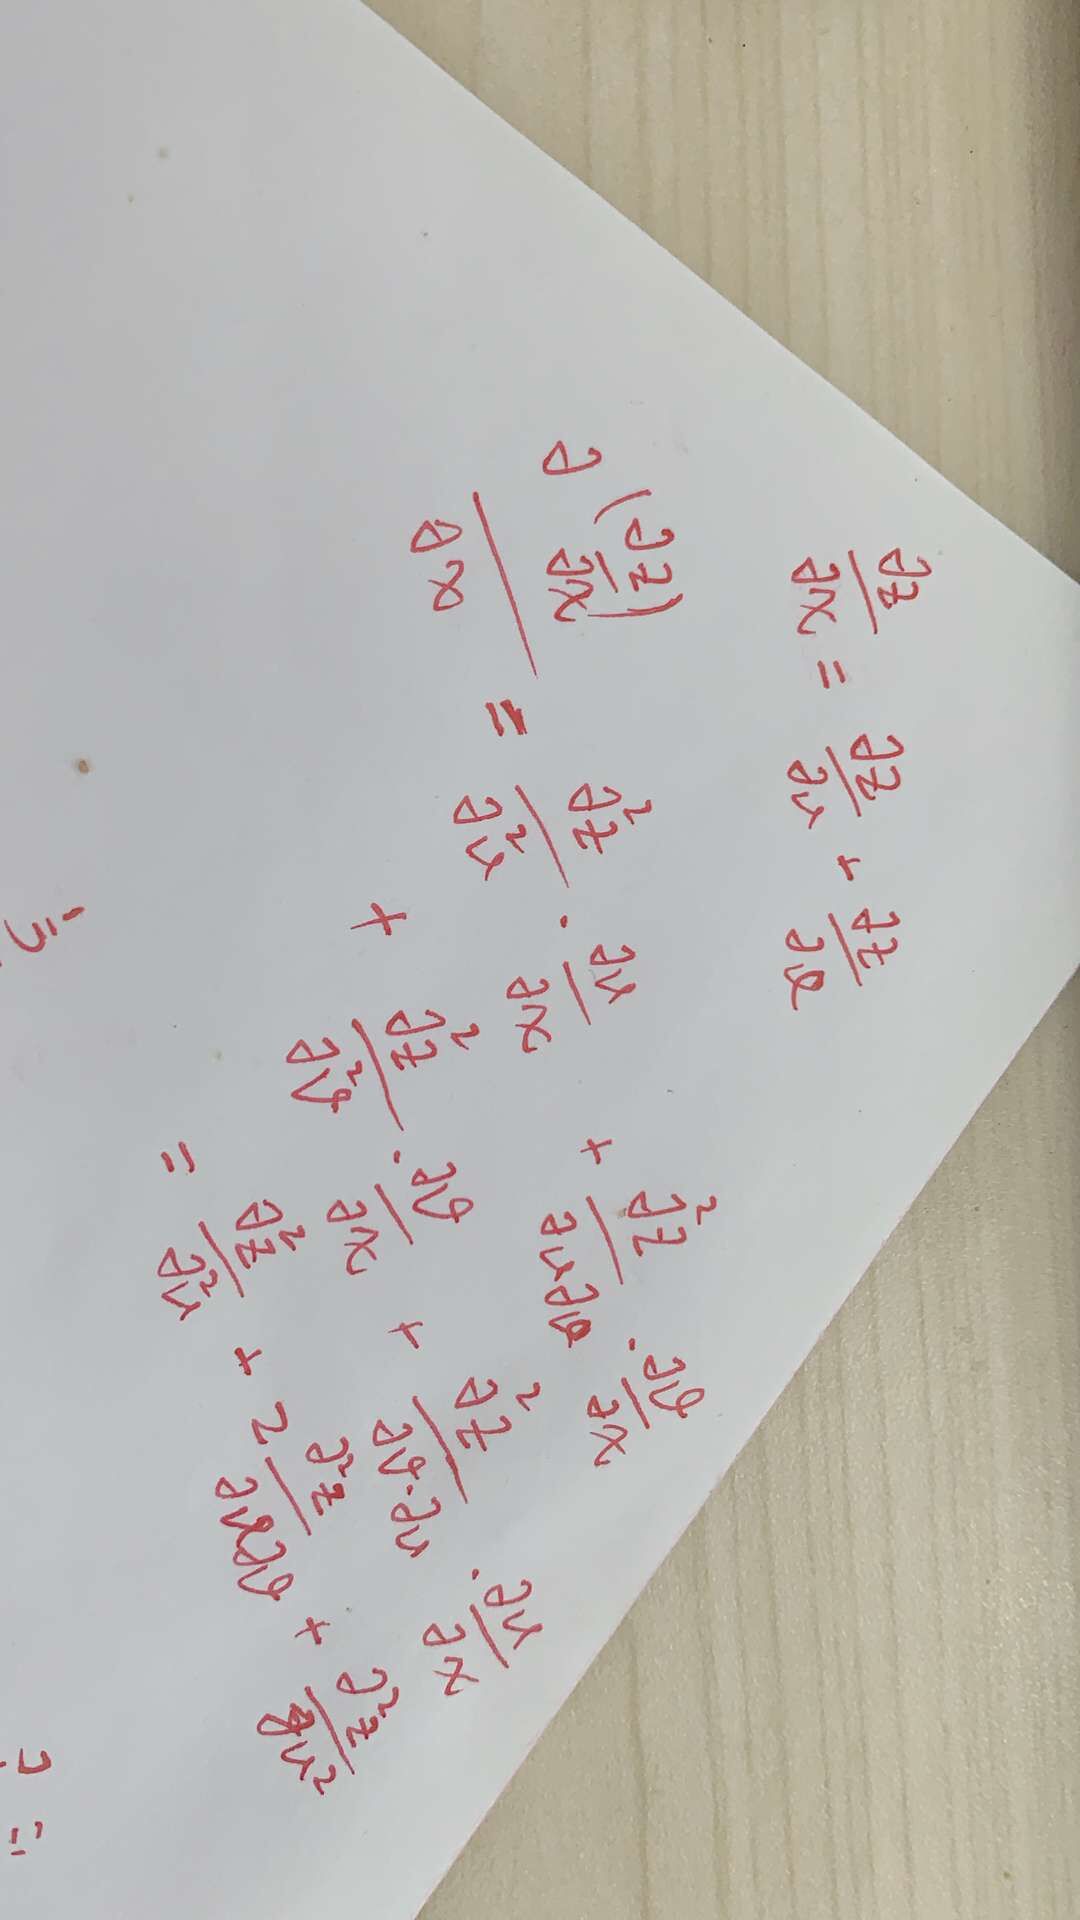 ∂z/∂x = ∂z/∂u + ∂z/∂v
∂(∂z/∂x)/∂x = ∂²z/∂²u · ∂u/∂x + ∂²z/∂u∂v · ∂v/∂x
+ ∂²z/∂²v · ∂v/∂x + ∂²z/∂v·∂u · ∂u/∂x
= ∂²z/∂²u + 2 ∂²z/∂u∂v + ∂²z/∂u²